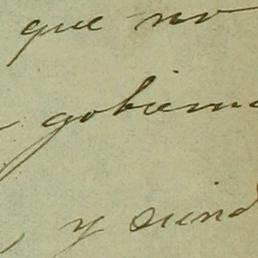 que no
gobierno
, y siend